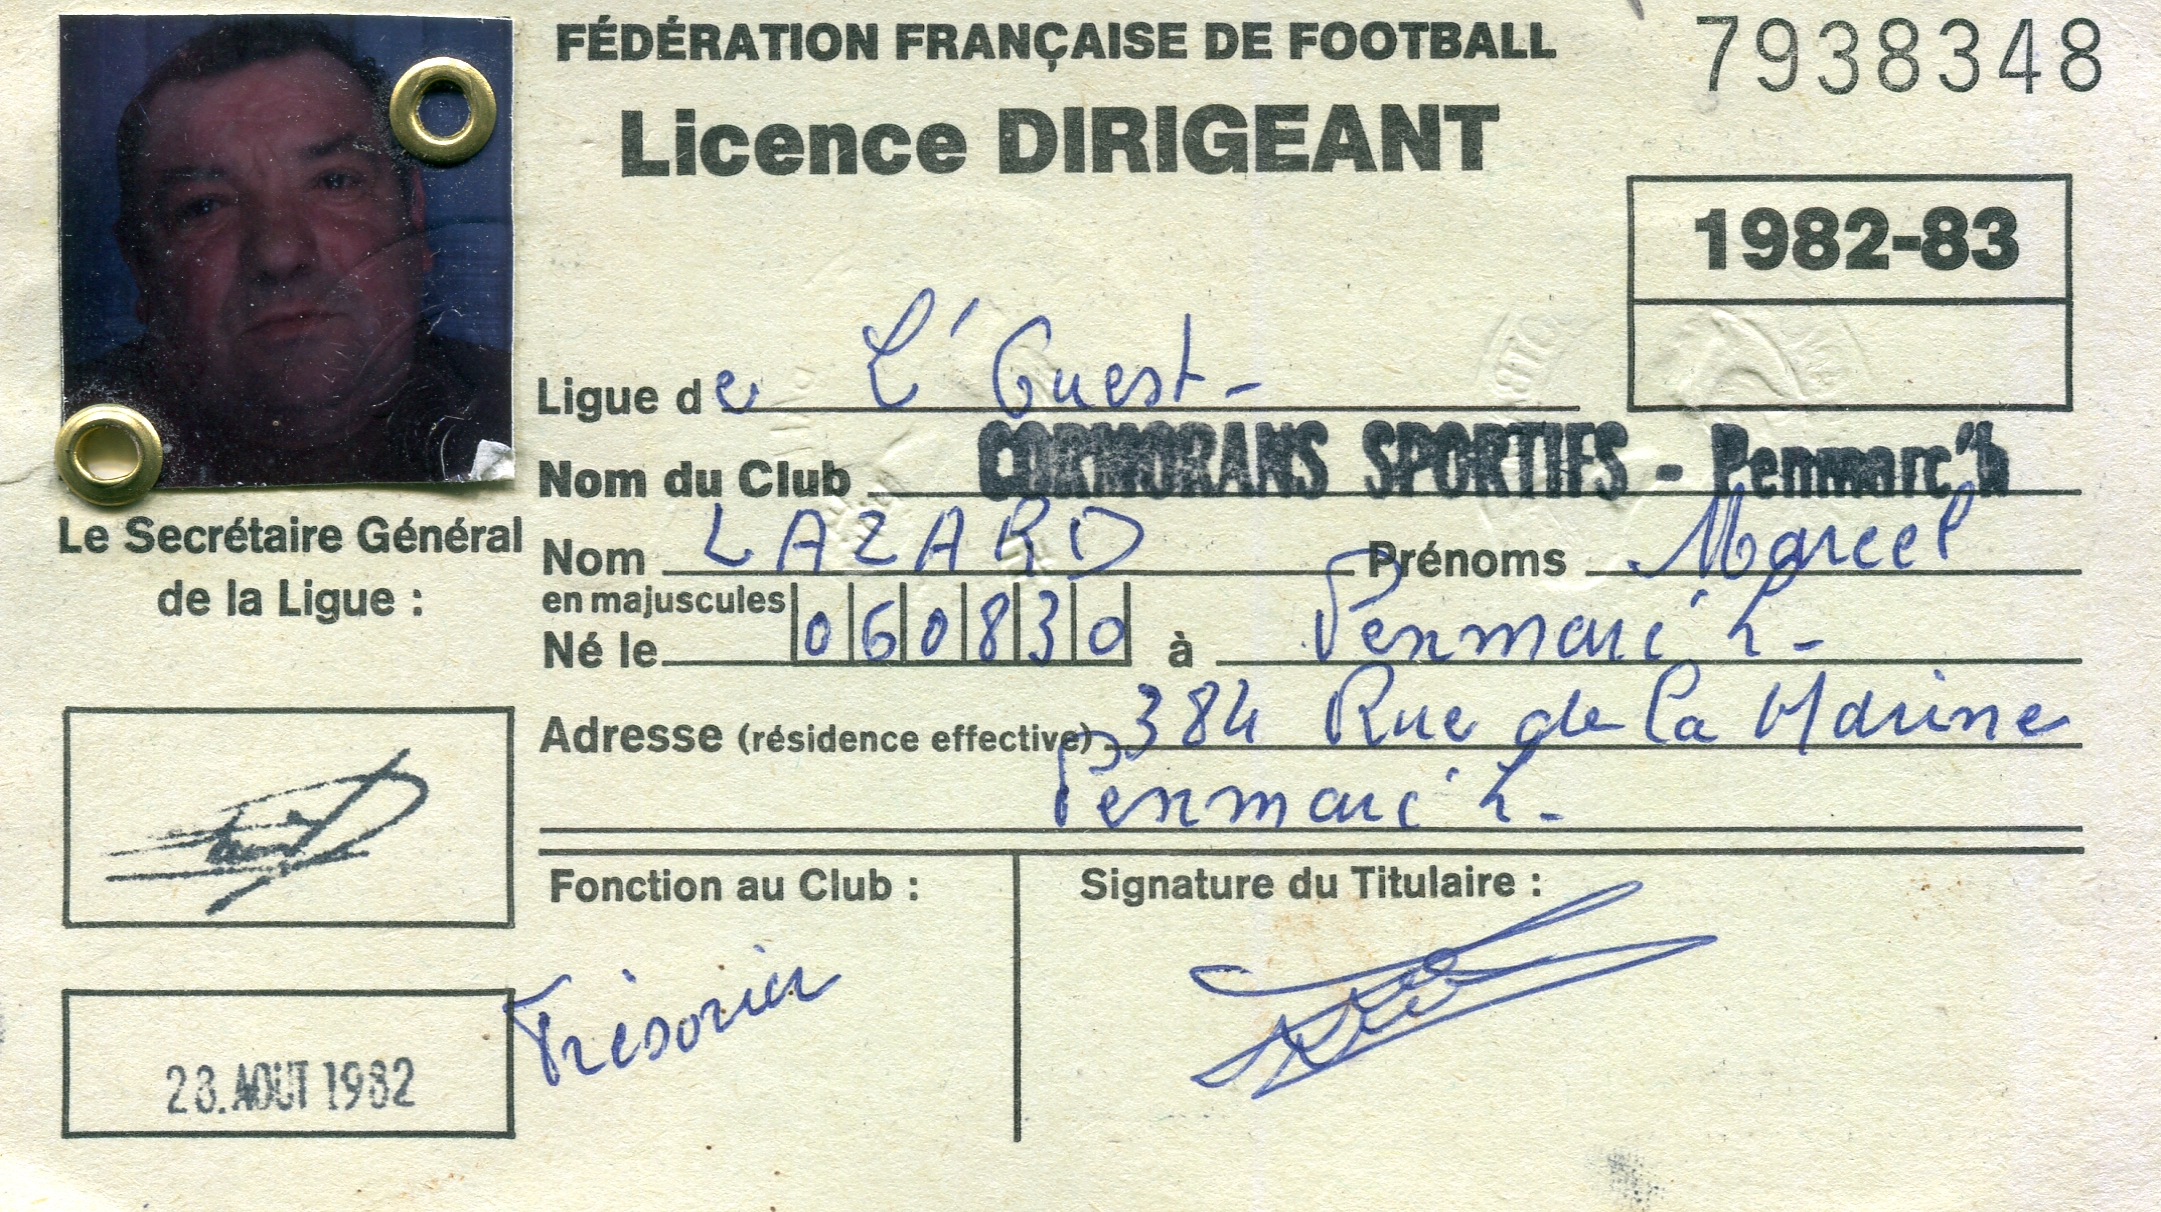 FÉDÉRATION FRANÇAISE DE FOOTBALL
7938348
Licence DIRIGEANT
1982-83
Ligue de L'Ouest-
Nom du Club CORMORANS SPORTIFS - Penmarc'h
Le Secrétaire Général
de la Ligue :
Nom LAZARD Prénoms Marcel
en majuscules
Né le 060830 à Penmarc'h-
Adresse (résidence effective) 384 Rue de la Marine
Penmarc'h-
Fonction au Club :
Signature du Titulaire :
Trésorier
28.AOUT 1982